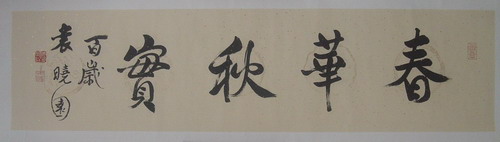 春華秋實
百歲
袁曉園